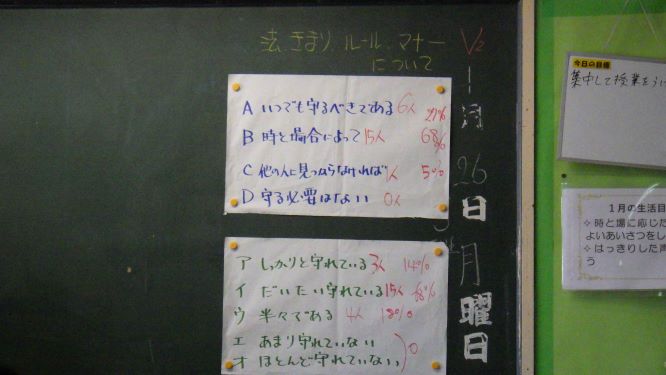 法、きまり、ルール、マナー
について
A いつでも守るべきである 6人 27%
B 時と場合によって 15人 68%
C 他の人に見つからなければ 1人 5%
D 守る必要はない 0人
ア しっかりと守れている 3人 14%
イ だいたい守れている 15人 68%
ウ 半々である 4人 18%
エ あまり守れていない
オ ほとんど守れていない 0
1/2
一月
26
日
月
曜
日
今日の目標
集中して授業をうけ
1月の生活目
時と場に応じた
よいあいさつをし
はっきりした声
う